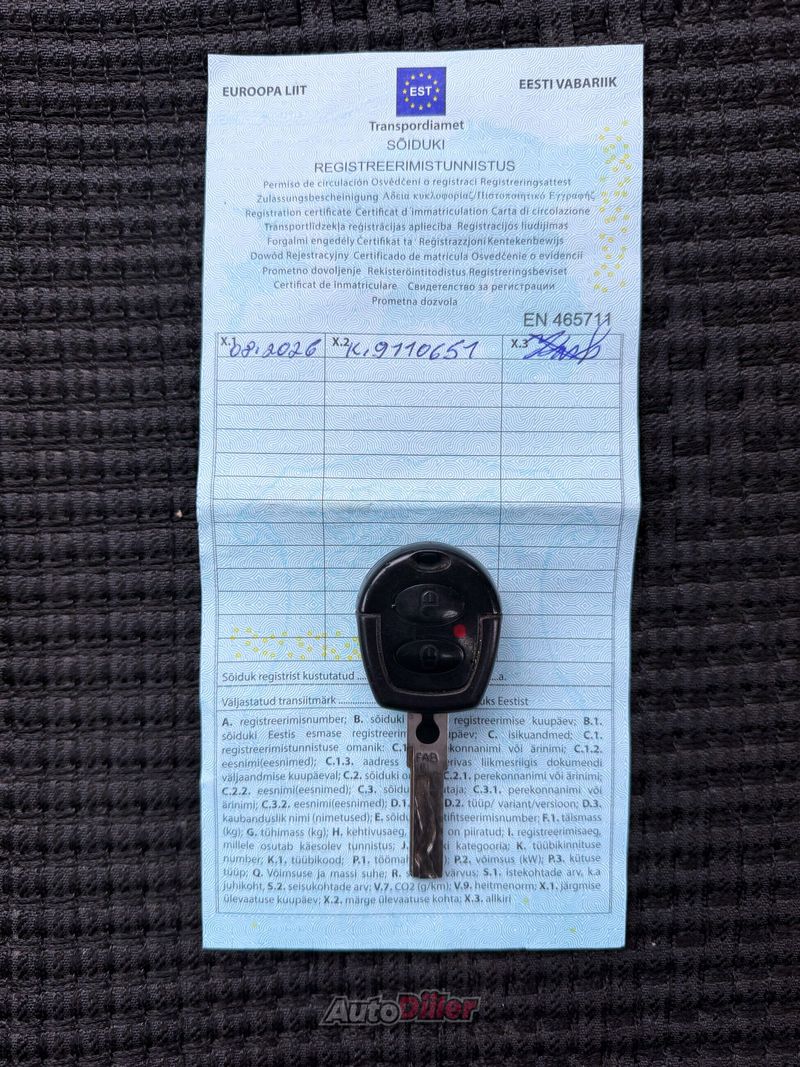 EUROOPA LIIT
EST
EESTI VABARIIK
Transpordiamet
SÕIDUKI
REGISTREERIMISTUNNISTUS
Permiso de circulación Osvědčení o registraci Registreringsattest
Zulassungsbescheinigung Αδεια κυκλοφορίας/Πιστοποιητικό Εγγραφής
Registration certificate Certificat d'immatriculation Carta di circolazione
Transportlīdzekļa reģistrācijas apliecība Registracijos liudijimas
Forgalmi engedély Ċertifikat ta' Reġistrazzjoni Kentekenbewijs
Dowód Rejestracyjny Certificado de matrícula Osvedčenie o evidencii
Prometno dovoljenje Rekisteröintitodistus Registreringsbeviset
Certificat de înmatriculare Свидетелство за регистрации
Prometna dozvola
EN 465711
X.1 08.2026 X.2 K.9110651 X.3
Sõiduk registrist kustutatud ... a.
Väljastatud transiitmärk ... uks Eestist
A. registreerimisnumber; B. sõiduki registreerimise kuupäev; B.1.
sõiduki Eestis esmase registreerim kuupäev; C. isikuandmed; C.1.
registreerimistunnistuse omanik: C.1 rekonnanimi või ärinimi; C.1.2.
eesnimi(eesnimed); C.1.3. aadress erivas liikmesriigis dokumendi
väljaandmise kuupäeval; C.2. sõiduki om C.2.1. perekonnanimi või ärinimi;
C.2.2. eesnimi(eesnimed); C.3. sõiduki taja; C.3.1. perekonnanimi või
ärinimi; C.3.2. eesnimi(eesnimed); D.1. D.2. tüüp/ variant/versioon; D.3.
kaubanduslik nimi (nimetused); E. sõidu tifitseerimisnumber; F.1. täismass
(kg); G. tühimass (kg); H. kehtivusaeg, on piiratud; I. registreerimisaeg,
millele osutab käesolev tunnistus; J. kategooria; K. tüübikinnituse
number; K.1. tüübikood; P.1. töömah ); P.2. võimsus (kW); P.3. kütuse
tüüp; Q. Võimsuse ja massi suhe; R. s värvus; S.1. istekohtade arv, k.a
juhikoht, S.2. seisukohtade arv; V.7. CO2 (g/km); V.9. heitmenorm; X.1. järgmise
ülevaatuse kuupäev; X.2. märge ülevaatuse kohta; X.3. allkiri
FAB
AutoDiler